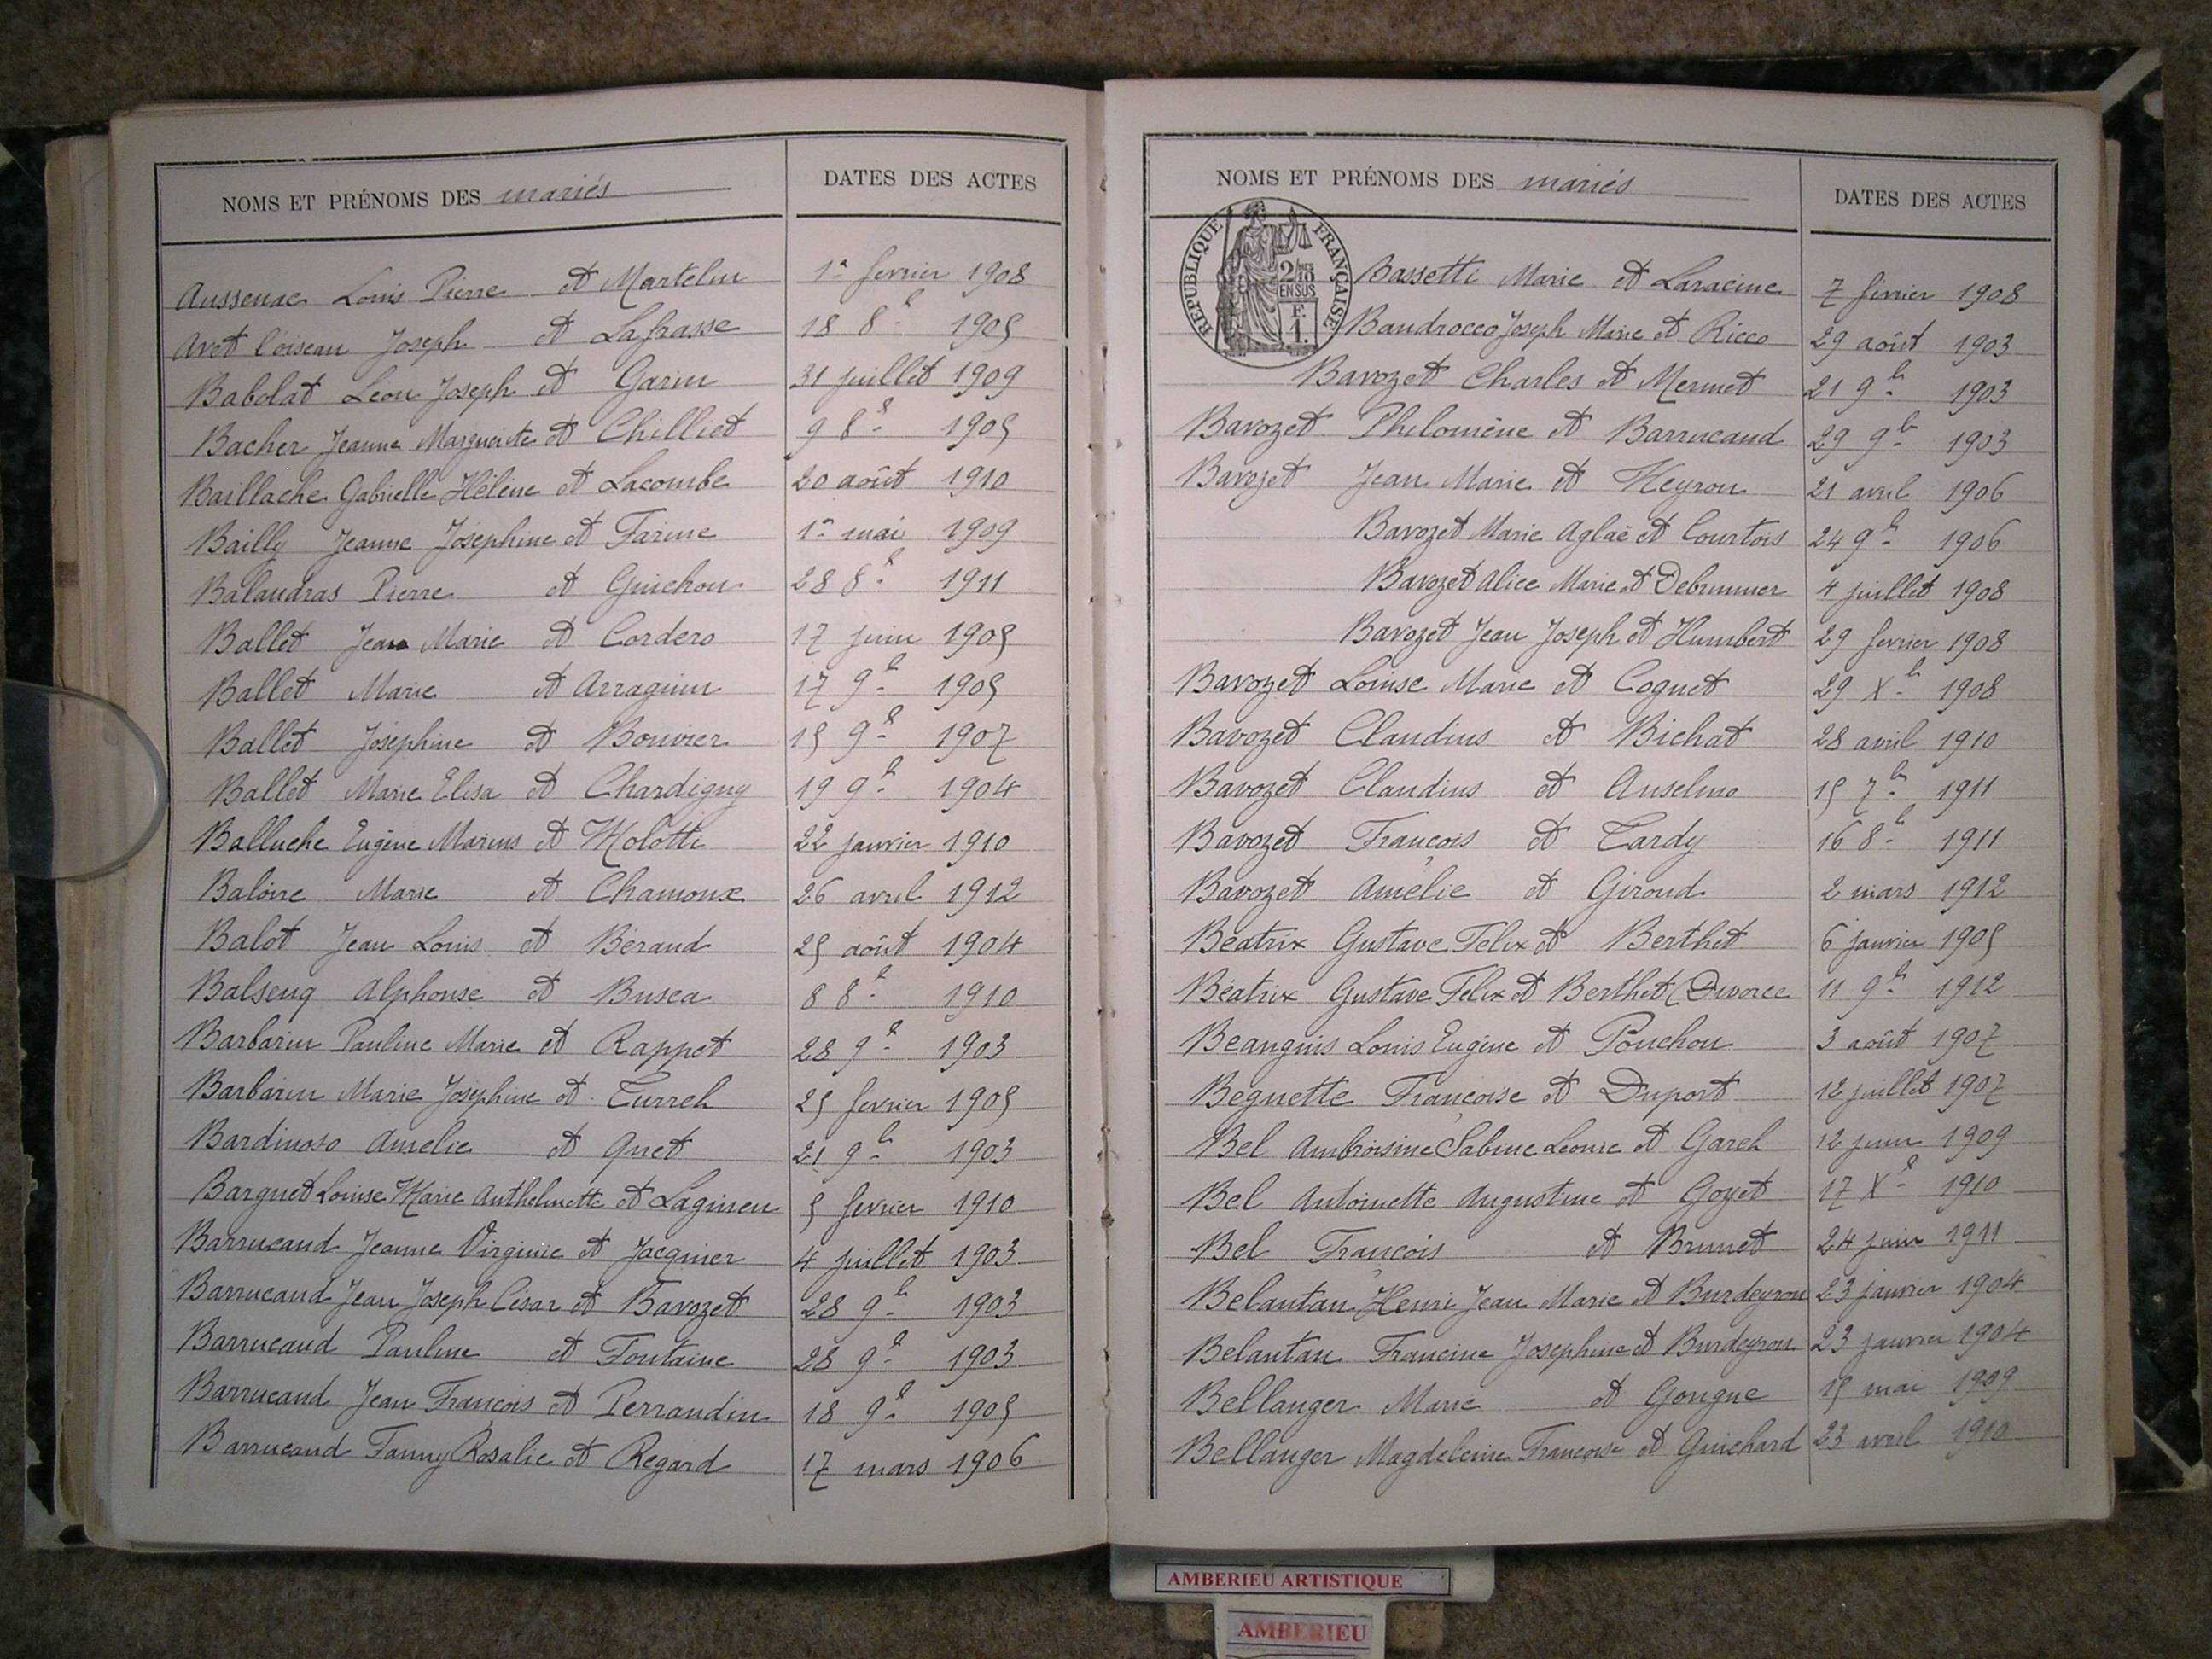 NOMS ET PRÉNOMS DES mariés DATES DES ACTES
Aussenac Louis Pierre et Martelin 1er fevrier 1908
Avet l'oiseau Joseph et Lafrasse 18 8e 1905
Babolat Leon Joseph et Garin 31 juillet 1909
Bacher Jeanne Marguerite et Chilliet 9 8e 1905
Baillache Gabrielle Hélène et Lacombe 20 août 1910
Bailly Jeanne Joséphine et Farine 1er mai 1909
Balandras Pierre et Guichon 28 8e 1911
Ballet Jean Marie et Cordero 17 juin 1905
Ballet Marie et Arraguin 17 9b 1905
Ballet Joséphine et Bouvier 15 9e 1907
Ballet Marie Elisa et Chardigny 19 9b 1904
Balluche Eugène Marius et Molotti 22 janvier 1910
Baloire Marie et Chamoux 26 avril 1912
Balot Jean Louis et Béraud 25 août 1904
Balsenq Alphonse et Busca 8 8e 1910
Barbarin Pauline Marie et Rappet 28 9e 1903
Barbarin Marie Joséphine et Turrel 25 fevrier 1905
Bardinoso Amelie et Quet 21 9b 1903
Barguet Louise Marie Anthelmette et 5 fevrier 1910
Barrucand Jeanne Virginie et Jacquier 4 juillet 1903
Barrucand Jean Joseph César et Bavozet 28 9b 1903
Barrucand Pauline et Fontaine 28 9e 1903
Barrucand Jean François et Perraudin 18 9e 1905
Barrucand Fanny Rosalie et Regard 17 mars 1906
NOMS ET PRÉNOMS DES mariés DATES DES ACTES
RÉPUBLIQUE FRANÇAISE
2/10 EN SUS
F. 1.
Bassetti Marie et Laracine 7 février 1908
Baudrocco Joseph Marie et Ricco 29 août 1903
Bavozet Charles et Mermet 21 9b 1903
Bavozet Philomène et Barrucand 29 9b 1903
Bavozet Jean Marie et Heyron 21 avril 1906
Bavozet Marie Aglaé et Courtois 24 9b 1906
Bavozet Alice Marie et Debrunner 4 juillet 1908
Bavozet Jean Joseph et Humbert 29 fevrier 1908
Bavozet Louise Marie et Coguet 29 Xb 1908
Bavozet Claudius et Bichat 28 avril 1910
Bavozet Claudius et Anselmo 15 7b 1911
Bavozet François et Tardy 16 8b 1911
Bavozet Amélie et Giroud 2 mars 1912
Béatrix Gustave Felix et Berthet 6 janvier 1905
Béatrix Gustave Felix et Berthet (Divorce 11 9b 1912
Beauguis Louis Eugène et Ponchon 3 août 1907
Beguette Françoise et Duport 12 juillet 1907
Bel Ambroisine Sabine Leonie et Garel 12 juin 1909
Bel Antoinette Augustine et Goyet 17 Xe 1910
Bel François et Brunet 24 juin 1911
Belantan Henri Jean Marie et Burdeyron 23 janvier 1904
Belantan Francine Josephine et Burdeyron 23 janvier 1904
Bellanger Marie et Gongue 15 mai 1909
Bellanger Magdeleine Françoise et Guichard 23 avril 1910
AMBERIEU ARTISTIQUE
AMBERIEU